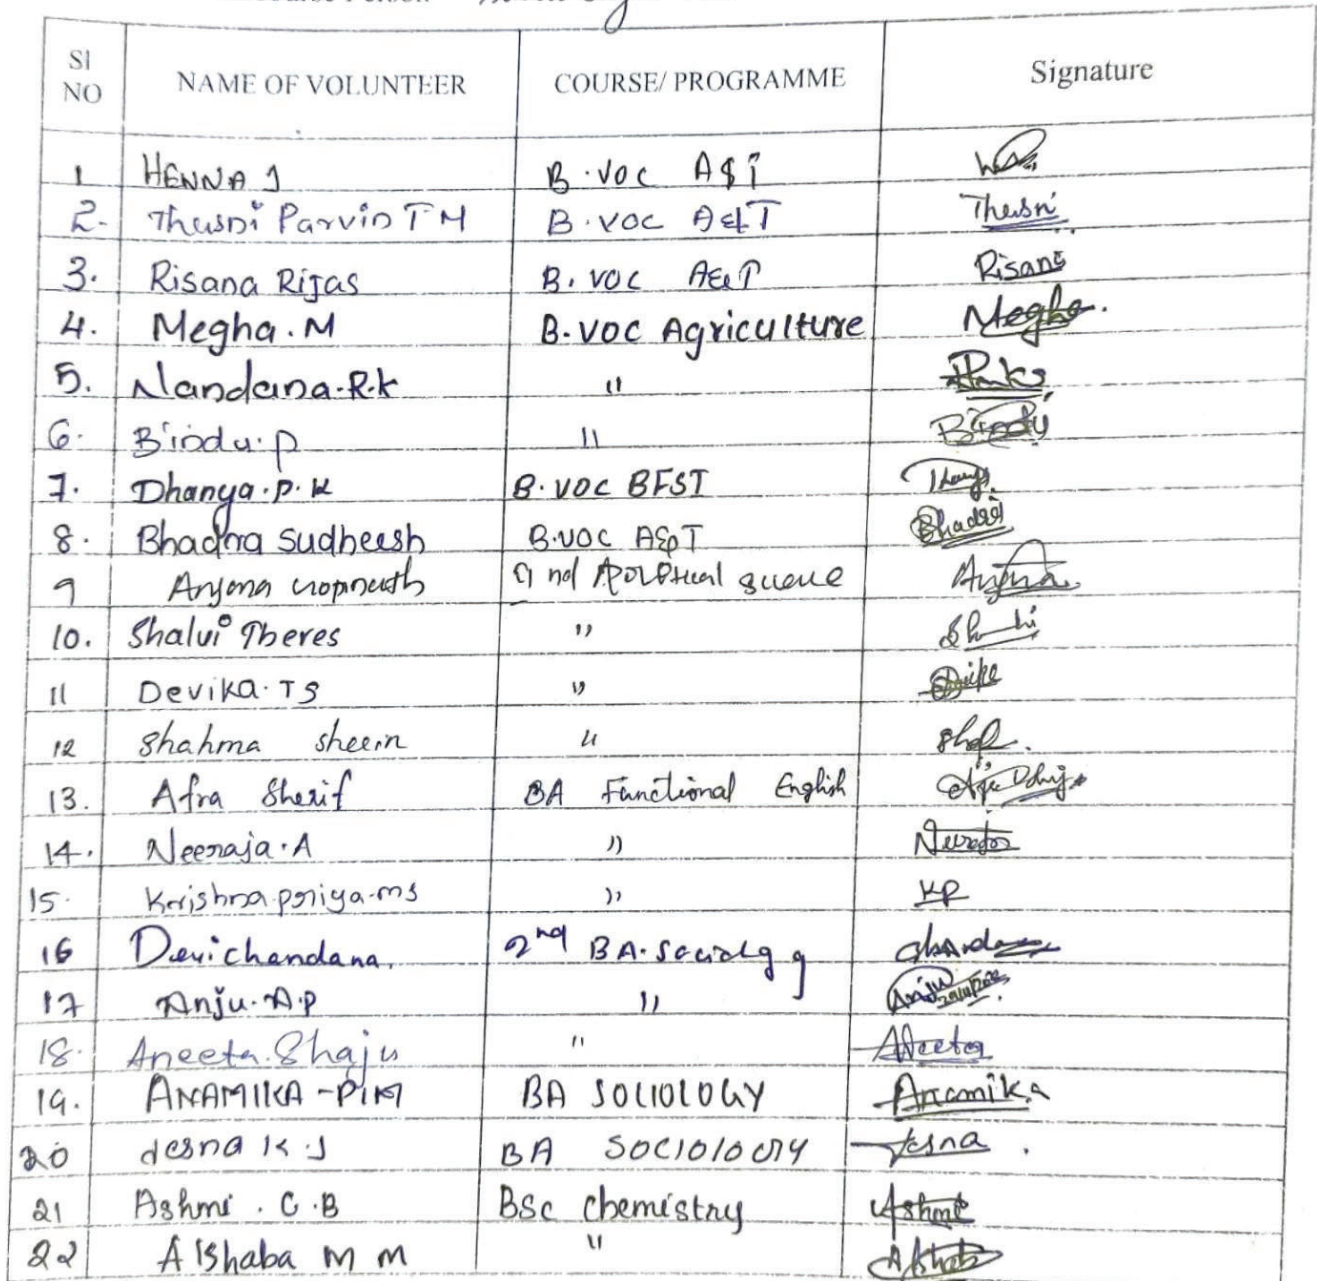 SI NO NAME OF VOLUNTEER COURSE/ PROGRAMME Signature
1 HENNA J B.VOC A&T
2. Thusni Parvin T M B.VOC A&T Thusni
3. Risana Rijas B.VOC A&T Risana
4. Megha.M B.VOC Agriculture Megha.
5. Nandana.R.K "
6. Bindu.P " Bindu
7. Dhanya.P.K B.VOC BFST
8. Bhadra Sudheesh B.VOC A&T Bhadra
9 Anjana Gopinath Anjana
10. Shalvi Theres "
11 Devika.TS "
12 Shahma sheerin "
13. Afra Sherif BA Functional English
14. Neeraja.A "
15. Krishna priya.ms " KP
16 Devichandana. 2nd BA.Sociology
17 Anju.A.P " Anju
18. Aneeta Shaju " Aneeta
19. ANAMIKA-P.M BA SOCIOLOGY Anamika
20 Jesna K.J BA SOCIOLOGY Jesna
21 Ashmi.C.B BSc chemistry Ashmi
22 AlShaba M M "